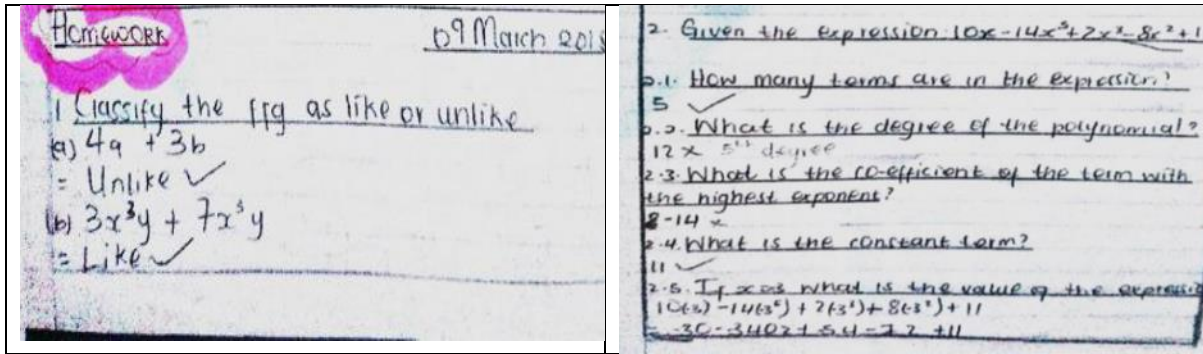 Homework
09 March 201
1 Classify the ffg as like or unlike
(a) 4a + 3b
= Unlike ✓
(b) 3x³y + 7x³y
= Like ✓
2. Given the expression: 10x - 14x⁵ + 2x³ - 8x² + 1
2.1. How many terms are in the expression?
5 ✓
2.2. What is the degree of the polynomial?
12 x 5th degree
2.3. What is the co-efficient of the term with
the highest exponent?
-14
2.4. What is the constant term?
11 ✓
2.5. If what is the value of the
10(-3) - 14(-3⁵) + 2(-3³) + 8(-3²) + 11
= -30 - 3402 + 54 - 72 + 11